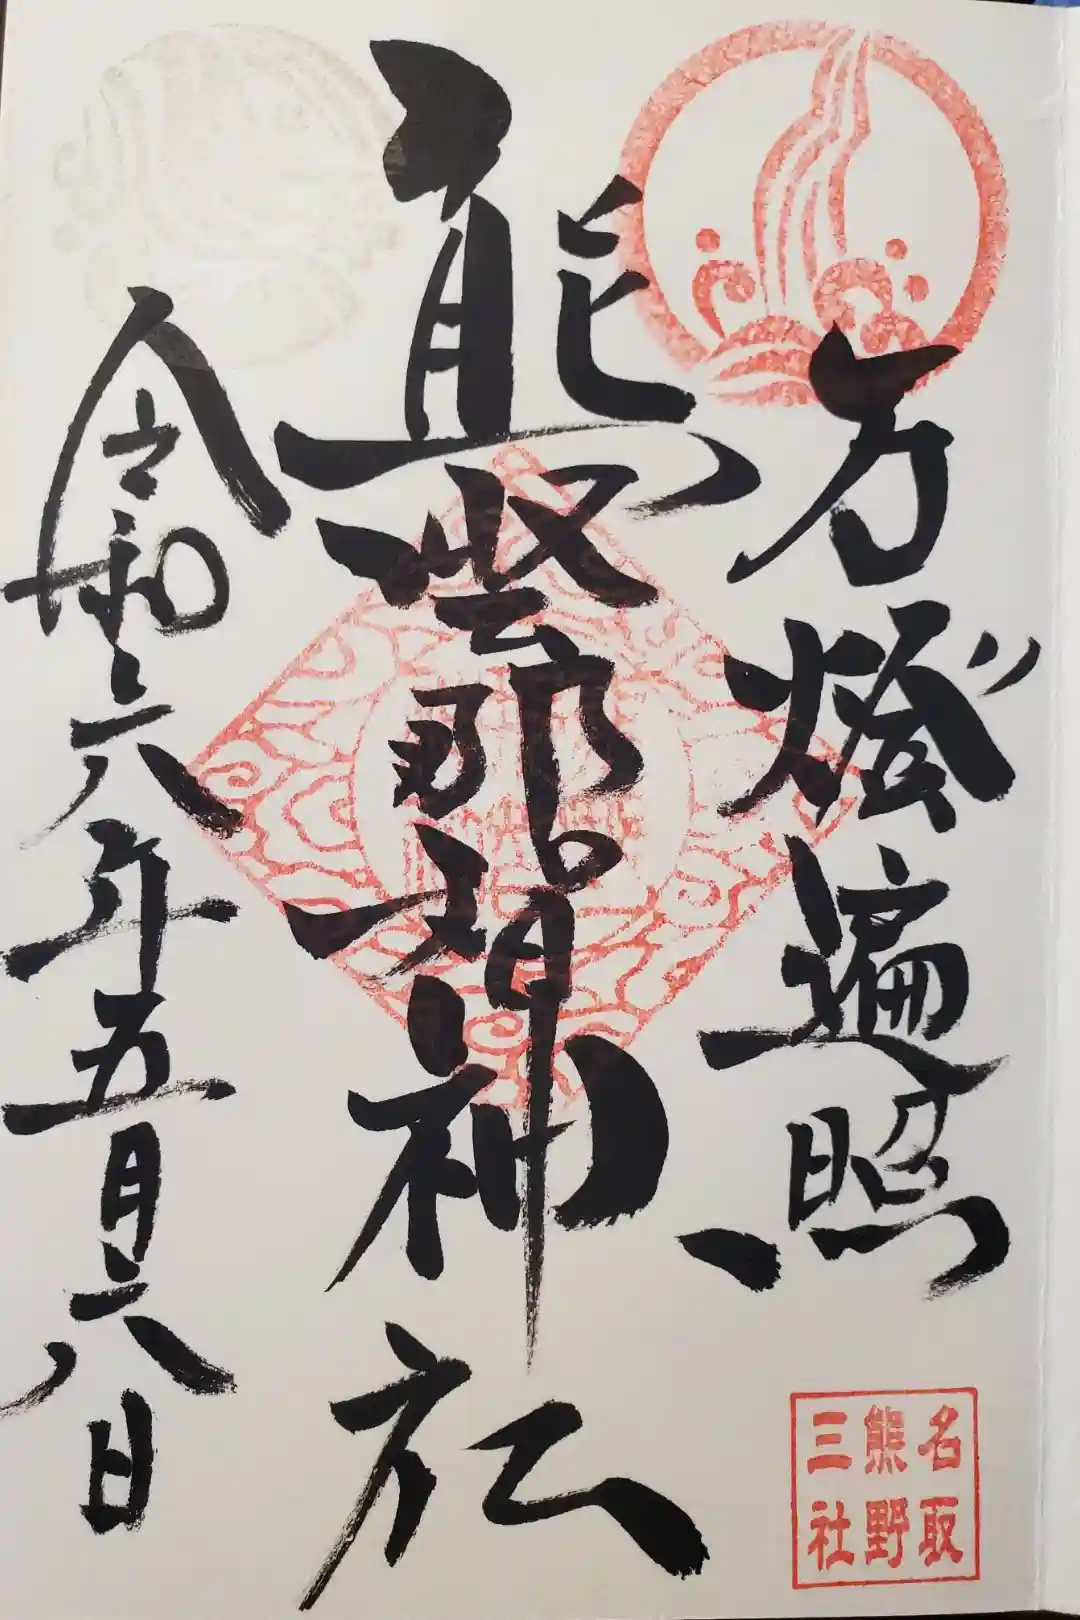 万燈遍照
熊埜那智神社
令和六年五月六日
名取
熊野
三社